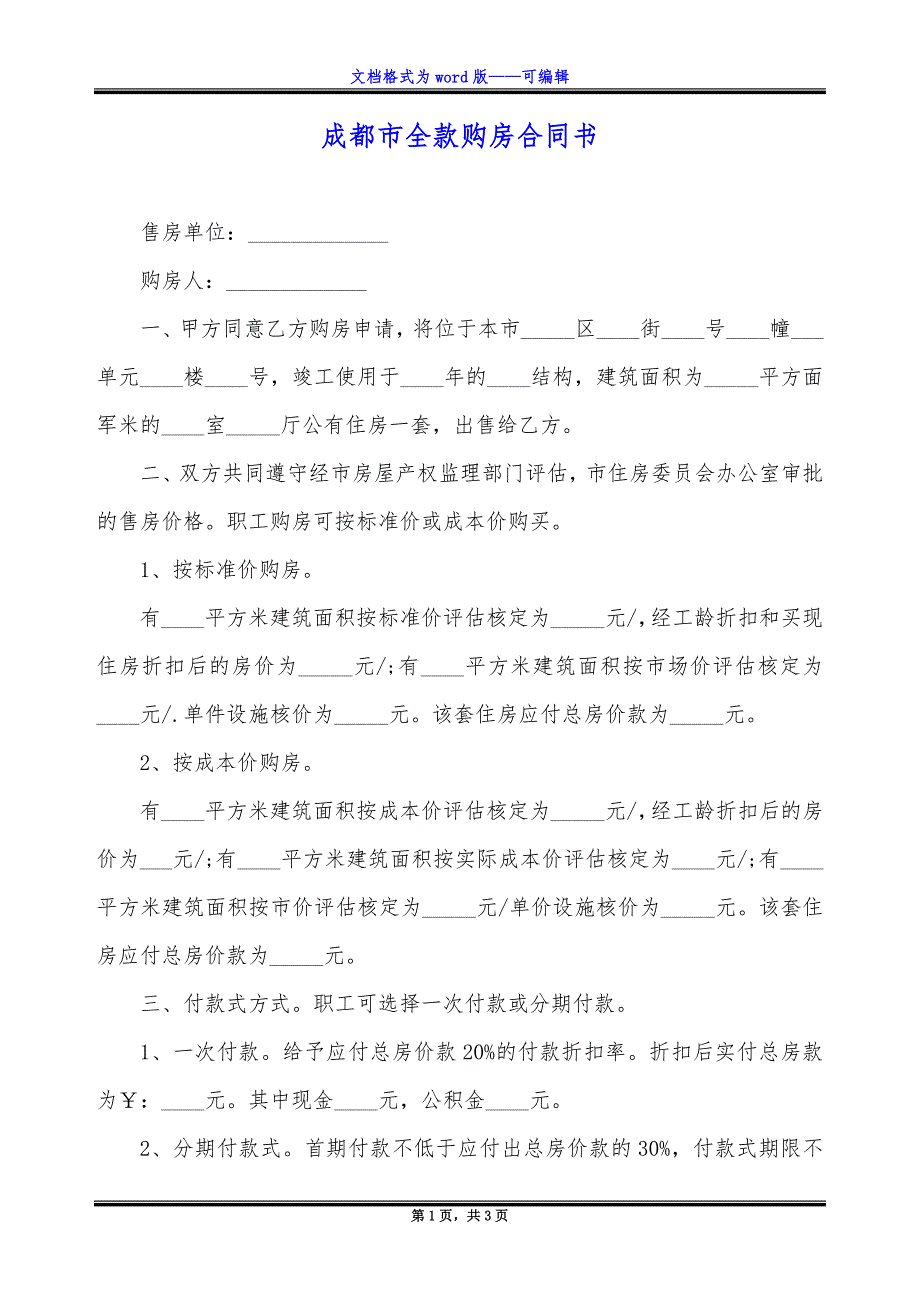 文档格式为 word 版——可编辑
成都市全款购房合同书
售房单位：_____________
购房人：_____________
一、甲方同意乙方购房申请，将位于本市_____区____街____号____幢___
单元____楼____号，竣工使用于____年的____结构，建筑面积为_____平方面
军米的____室_____厅公有住房一套，出售给乙方。
二、双方共同遵守经市房屋产权监理部门评估，市住房委员会办公室审批
的售房价格。职工购房可按标准价或成本价购买。
1、按标准价购房。
有____平方米建筑面积按标准价评估核定为_____元/,经工龄折扣和买现
住房折扣后的房价为_____元/;有____平方米建筑面积按市场价评估核定为
____元/.单件设施核价为_____元。该套住房应付总房价款为_____元。
2、按成本价购房。
有____平方米建筑面积按成本价评估核定为_____元/,经工龄折扣后的房
价为___元/;有____平方米建筑面积按实际成本价评估核定为____元/;有____
平方米建筑面积按市价评估核定为_____元/单价设施核价为_____元。该套住
房应付总房价款为_____元。
三、付款式方式。职工可选择一次付款或分期付款。
1、一次付款。给予应付总房价款 20%的付款折扣率。折扣后实付总房款
为￥：____元。其中现金____元，公积金____元。
2、分期付款式。首期付款不低于应付出总房价款的 30%，付款式期限不
第 1 页，共 3 页